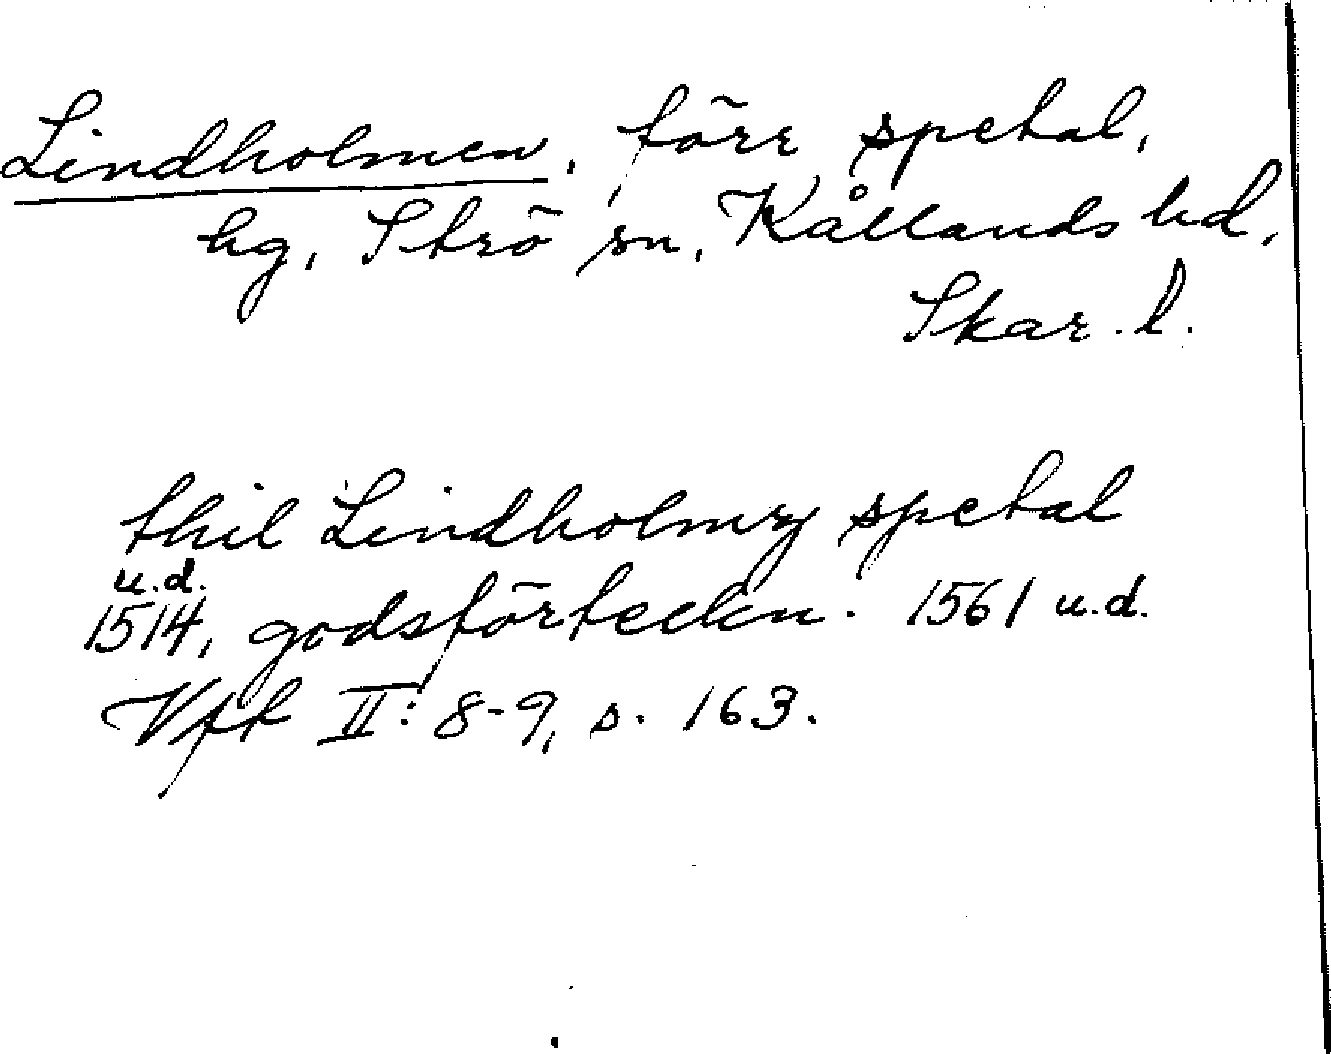 Lindholmen, förr spetal,
hg, Strö sn, Kållands hd,
Skar. l.
thil Lindholmꝫ spetal
u.d.
1514, godsförteckn. 1561 u.d.
Vft II: 8-9, s. 163.